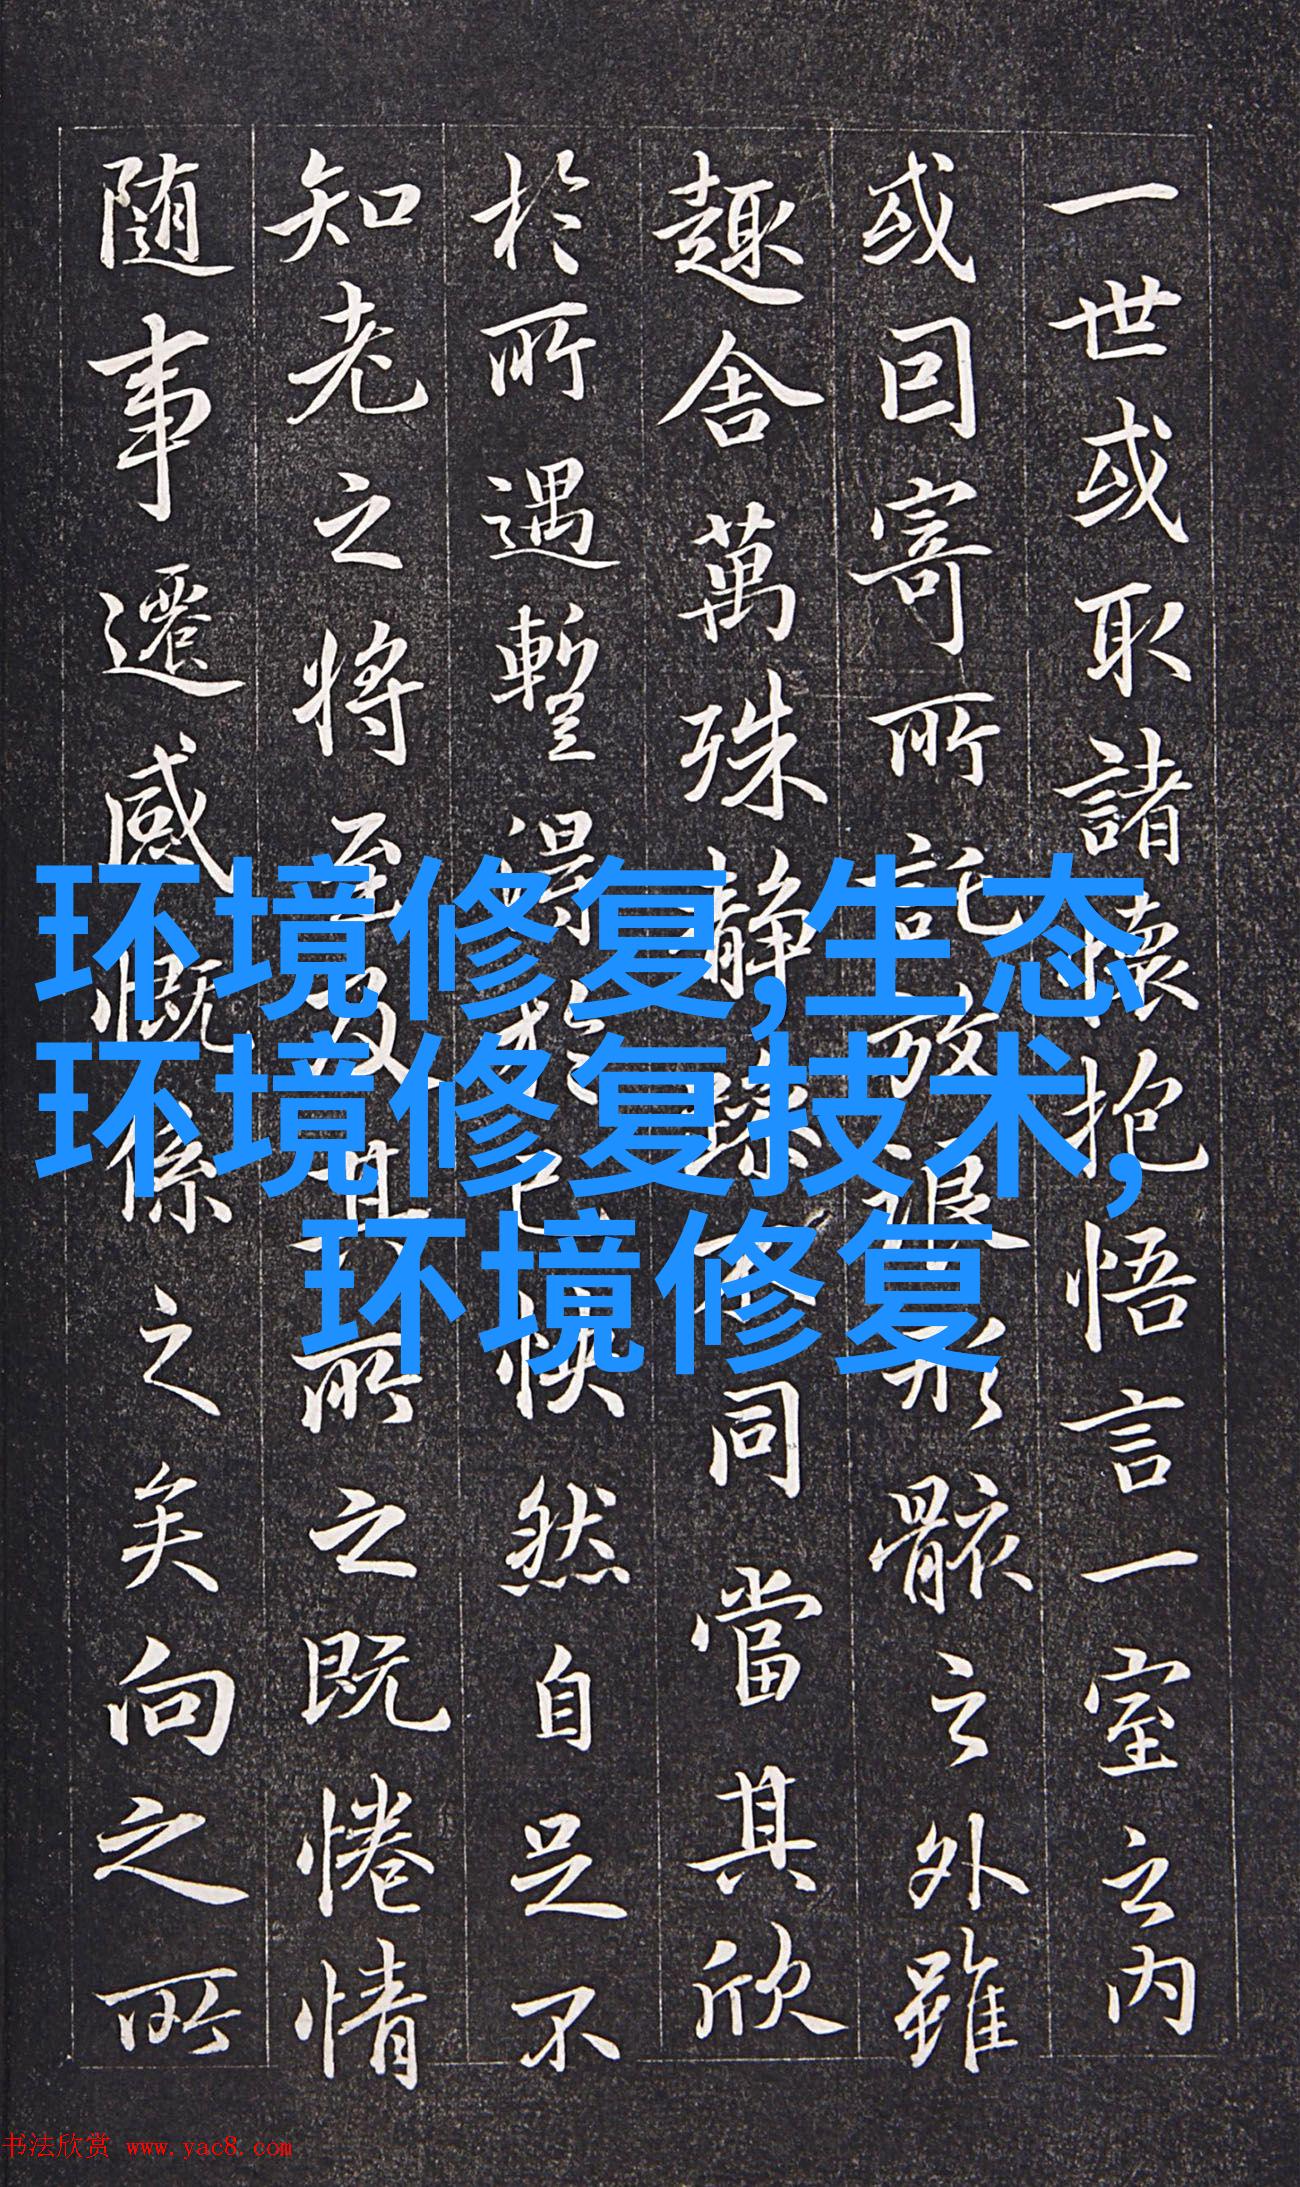 一世或取諸懷抱悟言一室之内
或因寄所託放浪形骸之外雖
趣舍萬殊静躁不同當其欣
於所遇暫得於己怏然自足不
知老之将至及其所之既惓情
随事遷感慨係之矣向之所
环境修复,生态
环境修复技术,
环境修复
书法欣赏 www.yac8.com